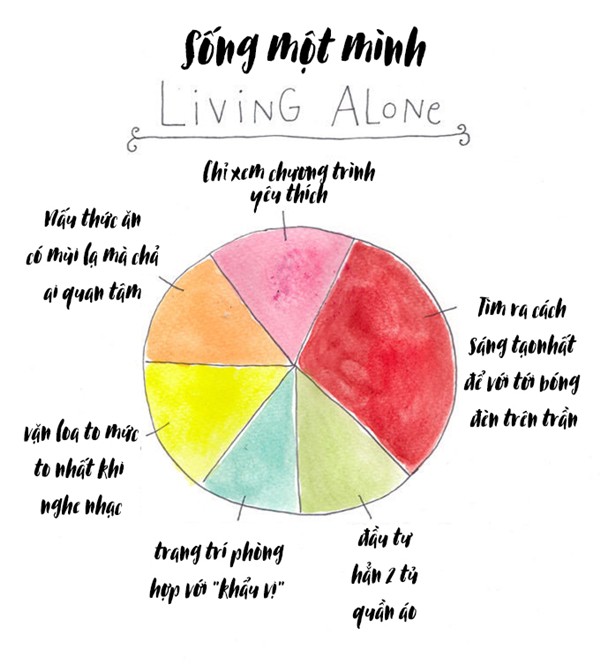 Sống một mình
LIVING ALONE
Chỉ xem chương trình
yêu thích
Nấu thức ăn
có mùi lạ mà chả
ai quan tâm
Tìm ra cách
sáng tạonhất
để với tới bóng
đèn trên trần
vặn loa to mức
to nhất khi
nghe nhạc
trang trí phòng
hợp với "khẩu vị"
đầu tư
hẳn 2 tủ
quần áo